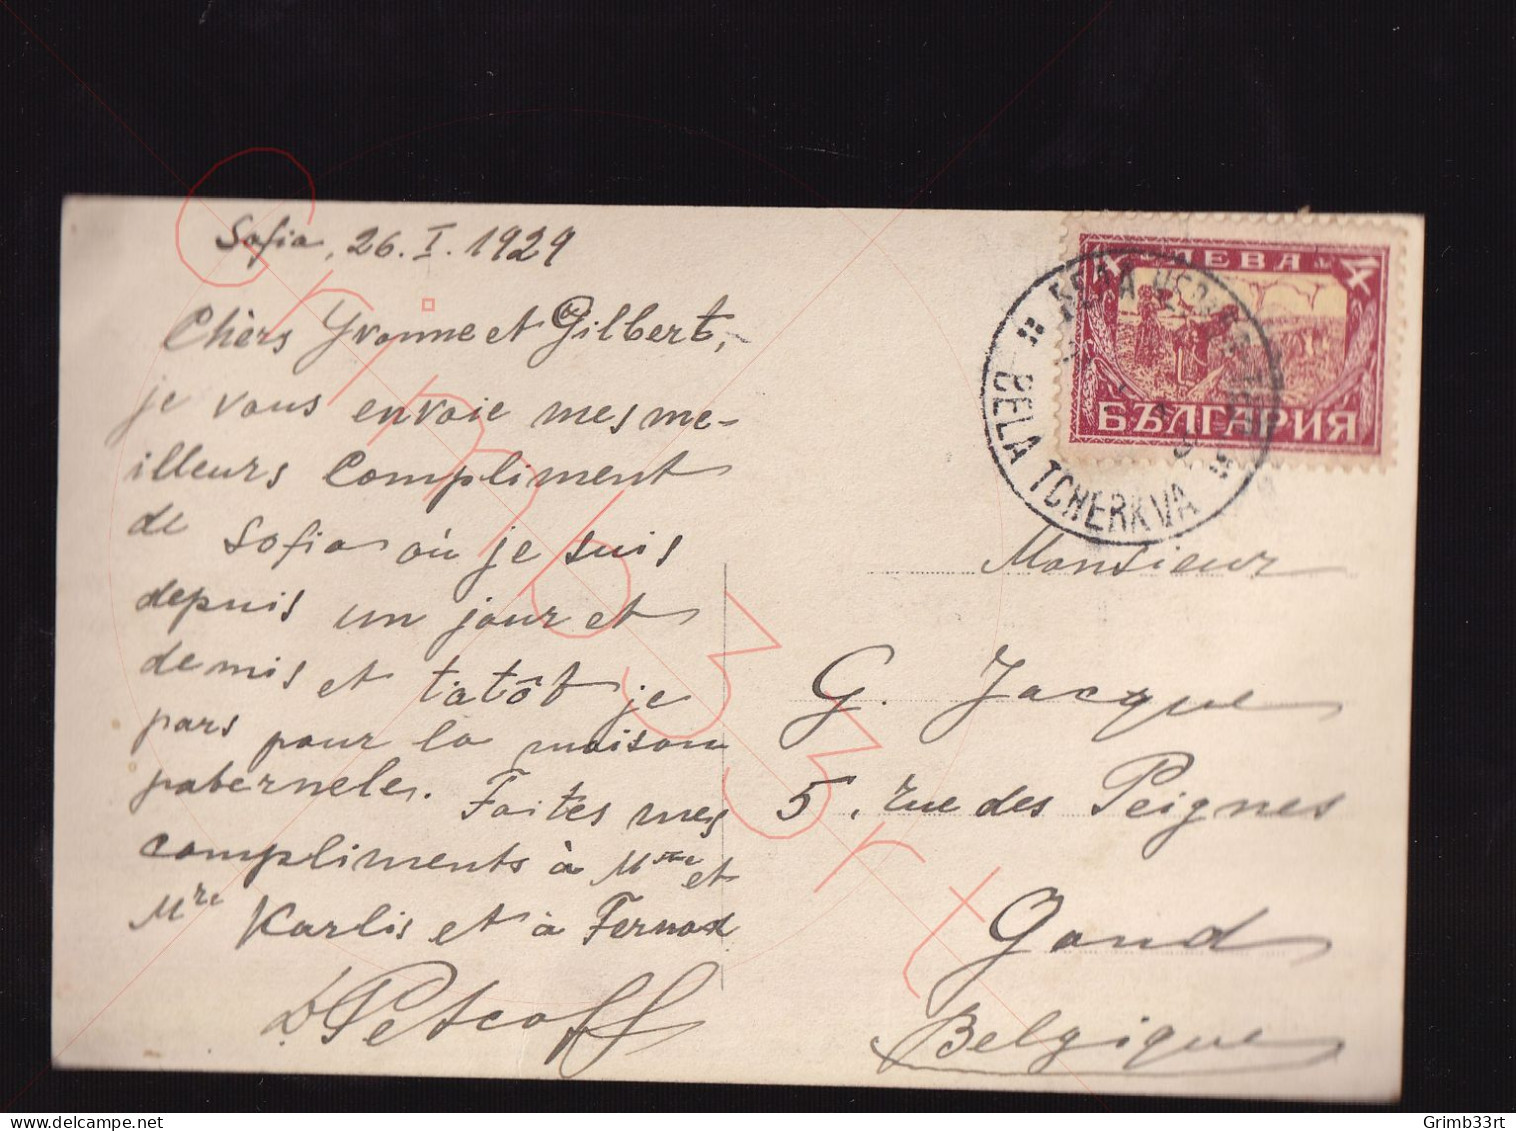 Sofia, 26. I. 1929
Chèrs Yvonne et Gilbert,
je vous envoie mes me-
illeurs compliment
de Sofia où je suis
depuis un jour et
demis et tatôt je
pars pour la maison
paternele. Faites mes
compliments à Mme et
Mre Karlis et à Fernad
D. Petcoff
4 ЛЕВА 4
БЪЛГАРИЯ
BELA TCHERKVA
Monsieur
G. Jacque
5, rue des Peignes
Gand
Belgique
Grimb33rt
delcampe.net
Grimb33rt